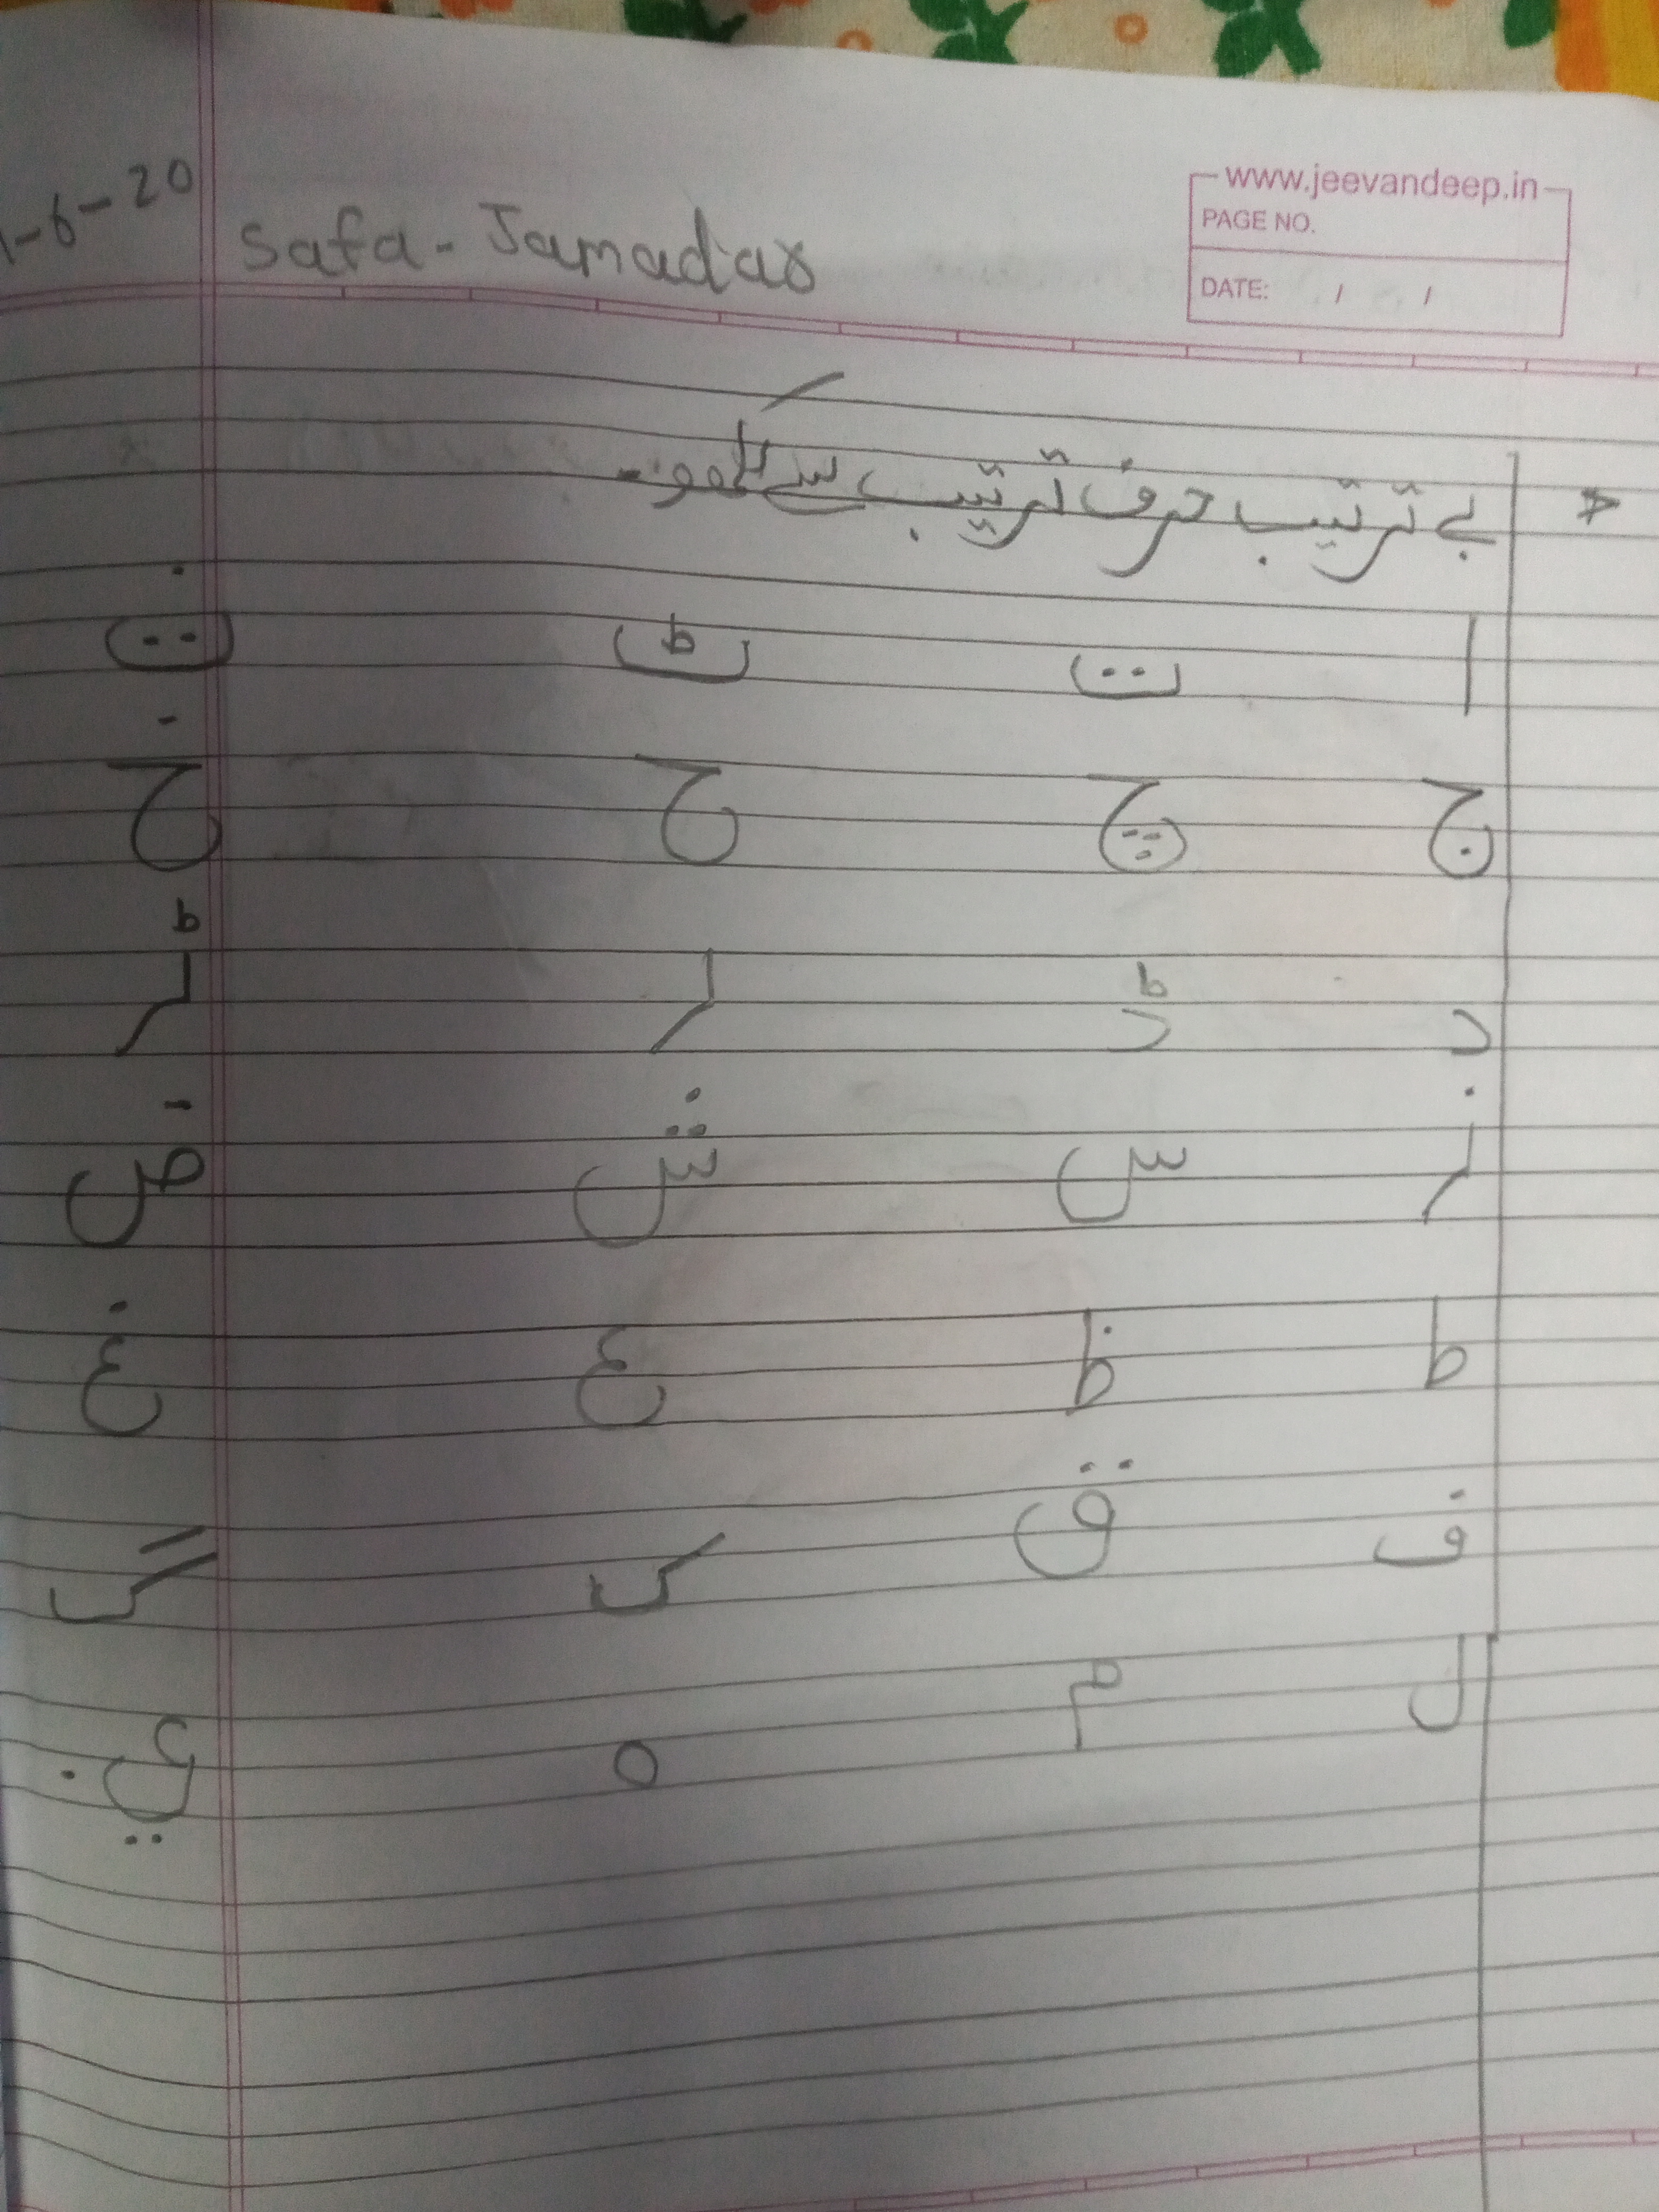 www.jeevandeep.in
PAGE NO.
DATE: / /
-6-20
Safa - Jamadar
بے ترتیب حرف ترتیب سے لکھو۔
ا ت ٹ ث
ج چ ح خ
د ڈ ر ڑ
ز س ش ض
ط ظ ع غ
ف ق ک گ
ل م ہ ي